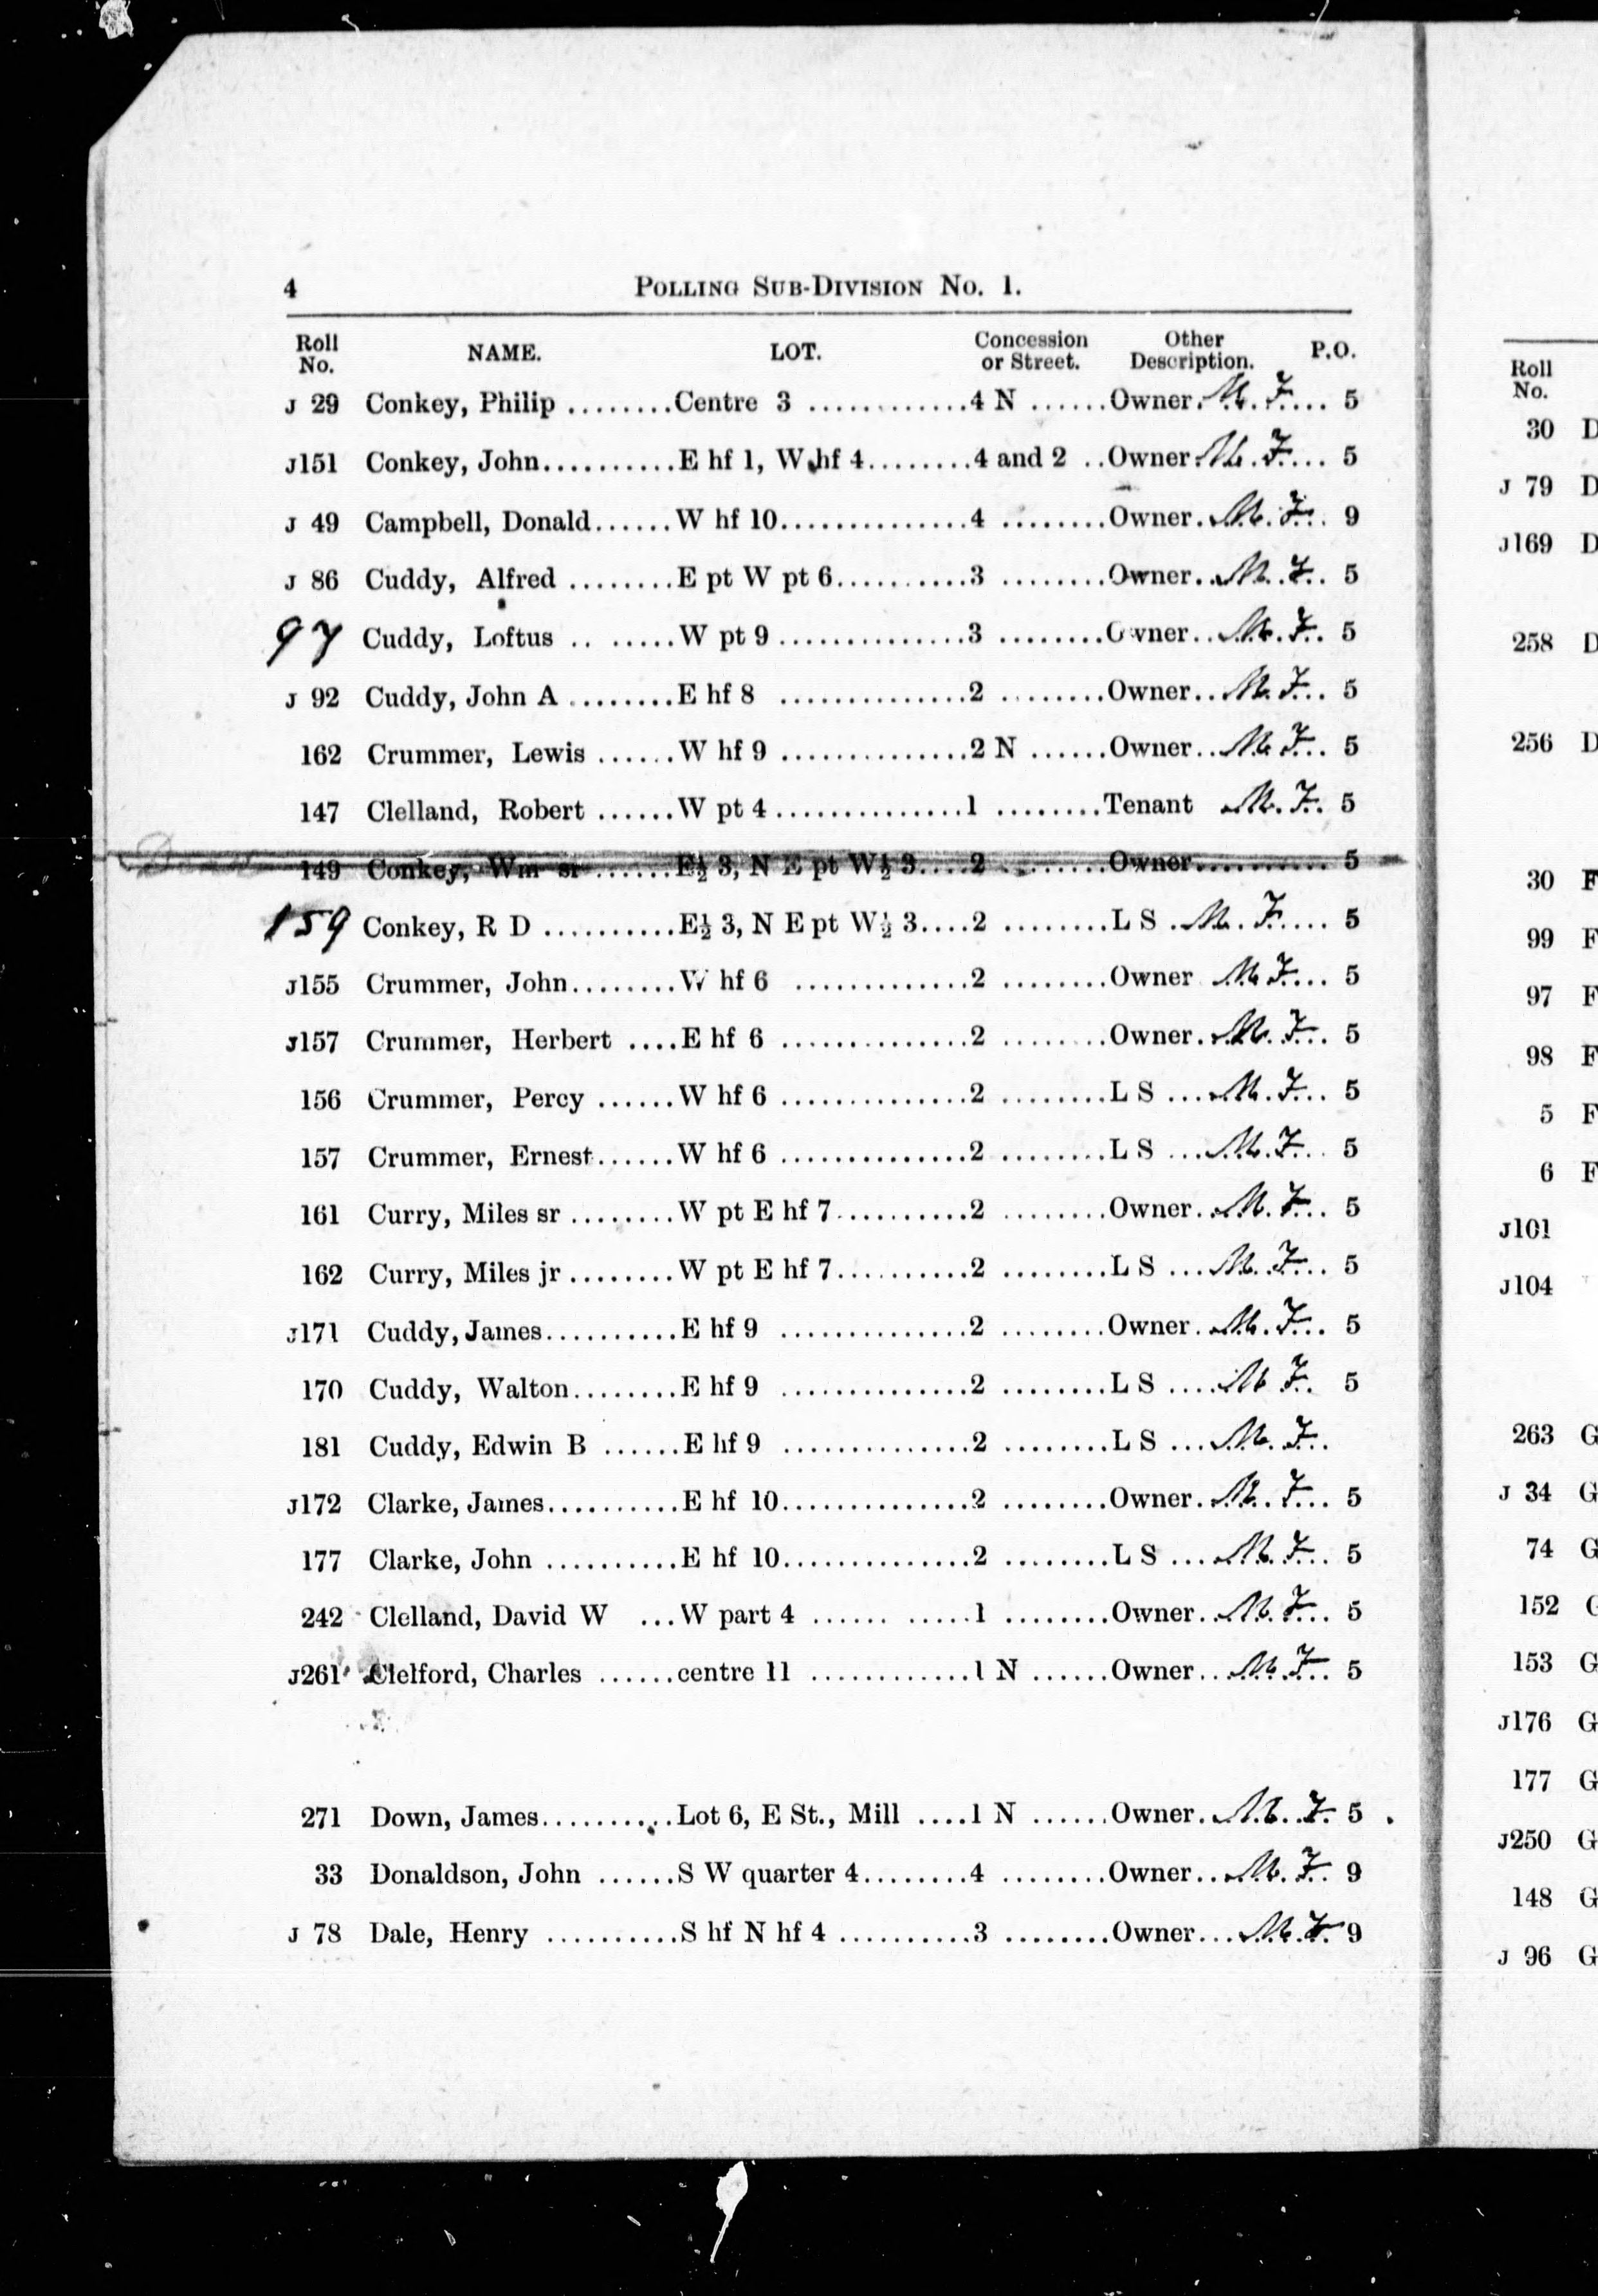 4 POLLING SUB-DIVISION No. 1.
Roll No. NAME. LOT. Concession or Street. Other Description. P.O.
J 29 Conkey, Philip ........Centre 3 ............4 N ......Owner. M. F.... 5
J151 Conkey, John..........E hf 1, W hf 4........4 and 2 ..Owner. M. F.... 5
J 49 Campbell, Donald......W hf 10..............4 ........Owner. M. F... 9
J 86 Cuddy, Alfred ........E pt W pt 6..........3 ........Owner.. M. F.. 5
97 Cuddy, Loftus .. ......W pt 9..............3 ........Owner.. M. F.. 5
J 92 Cuddy, John A ........E hf 8 ..............2 ........Owner.. M. F... 5
162 Crummer, Lewis ......W hf 9 ..............2 N ......Owner.. M. F... 5
147 Clelland, Robert ......W pt 4..............1 ........Tenant M. F. 5
149 Conkey, Wm sr ......E½ 3, N E pt W½ 3....2 ........Owner.......... 5
159 Conkey, R D ..........E½ 3, N E pt W½ 3....2 ........L S . M. F.... 5
J155 Crummer, John........W hf 6 .............2 ........Owner M. F.... 5
J157 Crummer, Herbert ....E hf 6 ..............2 ........Owner. M. F... 5
156 Crummer, Percy ......W hf 6 ..............2 ........L S ... M. F... 5
157 Crummer, Ernest......W hf 6 ..............2 ........L S ... M. F... 5
161 Curry, Miles sr ........W pt E hf 7..........2 ........Owner.. M. F... 5
162 Curry, Miles jr ........W pt E hf 7..........2 ........L S ... M. F... 5
J171 Cuddy, James..........E hf 9 ..............2 ........Owner. M. F... 5
170 Cuddy, Walton........E hf 9 ..............2 ........L S .... M F.. 5
181 Cuddy, Edwin B ......E hf 9 ..............2 ........L S ... M. F..
J172 Clarke, James..........E hf 10..............2 ........Owner. M. F... 5
177 Clarke, John ..........E hf 10..............2 ........L S ... M. F... 5
242 Clelland, David W ...W part 4 ...... .....1 ........Owner.. M. F... 5
J261 Clelford, Charles ......centre 11 ............1 N ......Owner.. M. F.. 5
271 Down, James..........Lot 6, E St., Mill ....1 N ......Owner. M. F. 5
33 Donaldson, John ......S W quarter 4........4 ........Owner.. M. F. 9
J 78 Dale, Henry ..........S hf N hf 4 ..........3 ........Owner... M. F. 9
Roll No.
30 D
J 79 D
J169 D
258 D
256 D
30 F
99 F
97 F
98 F
5 F
6 F
J101
J104
263 G
J 34 G
74 G
152 G
153 G
J176 G
177 G
J250 G
148 G
J 96 G